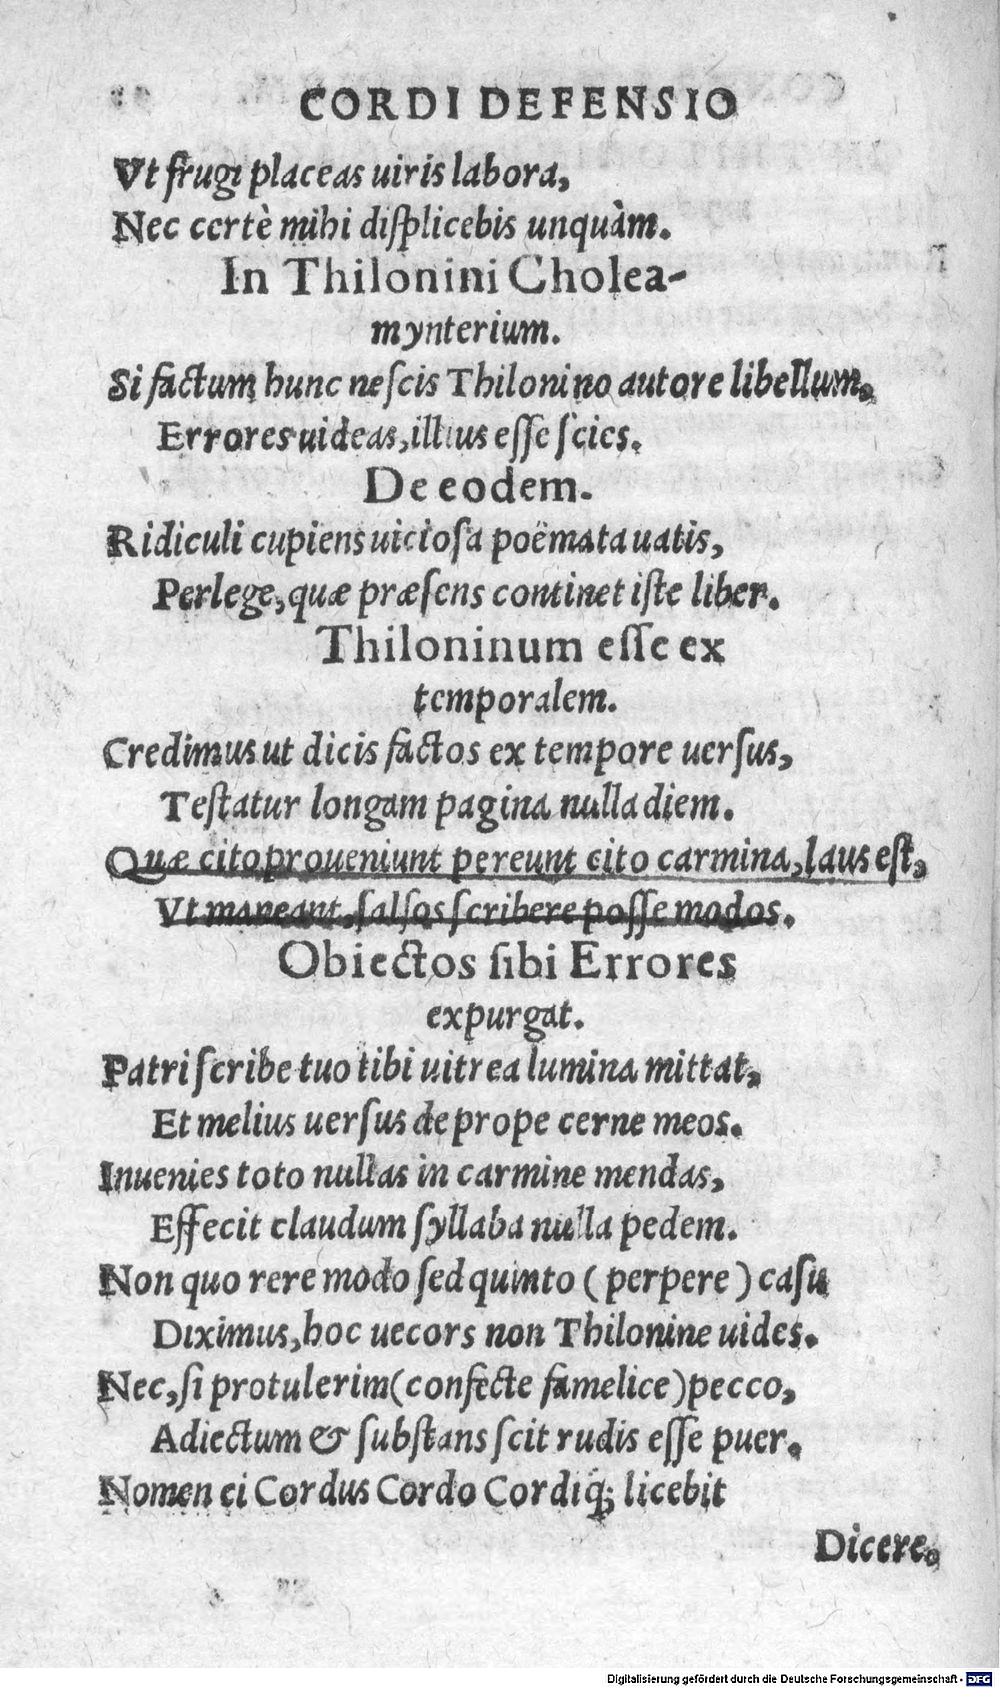 CORDI DEFENSIO
Vt frugi placeas uiris labora,
Nec certè mihi diſplicebis unquàm.
In Thilonini Cholea-
mynterium.
Si factum hunc neſcis Thilonino autore libellum,
Errores uideas, illius eſſe ſcies.
De eodem.
Ridiculi cupiens uicioſa poëmata uatis,
Perlege, quæ præſens continet iſte liber.
Thiloninum eſſe ex
temporalem.
Credimus ut dicis factos ex tempore uerſus,
Teſtatur longam pagina nulla diem.
Quæ cito proueniunt pereunt cito carmina, laus eſt,
Vt maneant, ſalſos ſcribere poſſe modos.
Obiectos ſibi Errores
expurgat.
Patri ſcribe tuo tibi uitrea lumina mittat,
Et melius uerſus de prope cerne meos.
Inuenies toto nullas in carmine mendas,
Effecit claudum ſyllaba nulla pedem.
Non quo rere modo ſed quinto ( perpere ) caſu
Diximus, hoc uecors non Thilonine uides.
Nec, ſi protulerim (confecte famelice) pecco,
Adiectum & ſubſtans ſcit rudis eſſe puer.
Nomen ei Cordus Cordo Cordiq; licebit
Dicere.
Digitalisierung gefördert durch die Deutsche Forschungsgemeinschaft - DFG